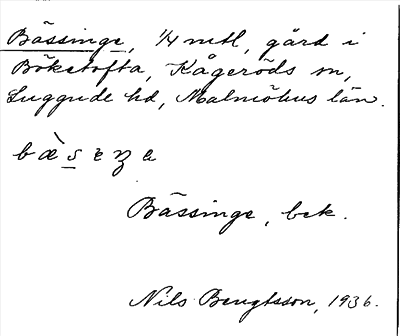 Bässinge, 1/4 mtl, gård i
Böketofta, Kågeröds sn,
Luggude hd, Malmöhus län.
bæ̀sɛŋə
Bässinge, bek.
Nils Bengtsson, 1936.